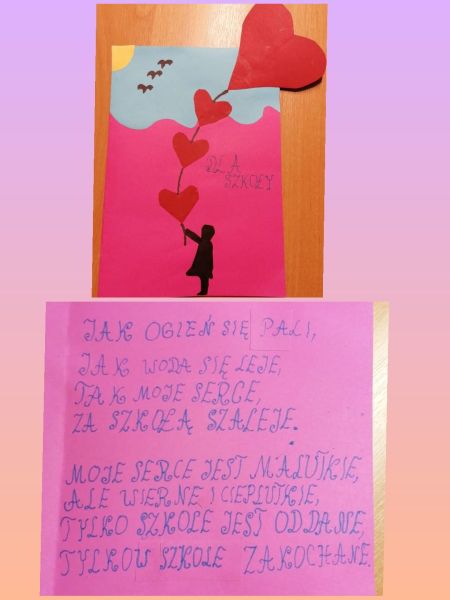 DLA
SZKOŁY
JAK OGIEŃ SIĘ PALI,
JAK WODA SIĘ LEJE,
TAK MOJE SERCE,
ZA SZKOŁĄ SZALEJE.
MOJE SERCE JEST MALUTKIE,
ALE WIERNE I CIEPLUTKIE,
TYLKO SZKOLE JEST ODDANE,
TYLKO W SZKOLE ZAKOCHANE.